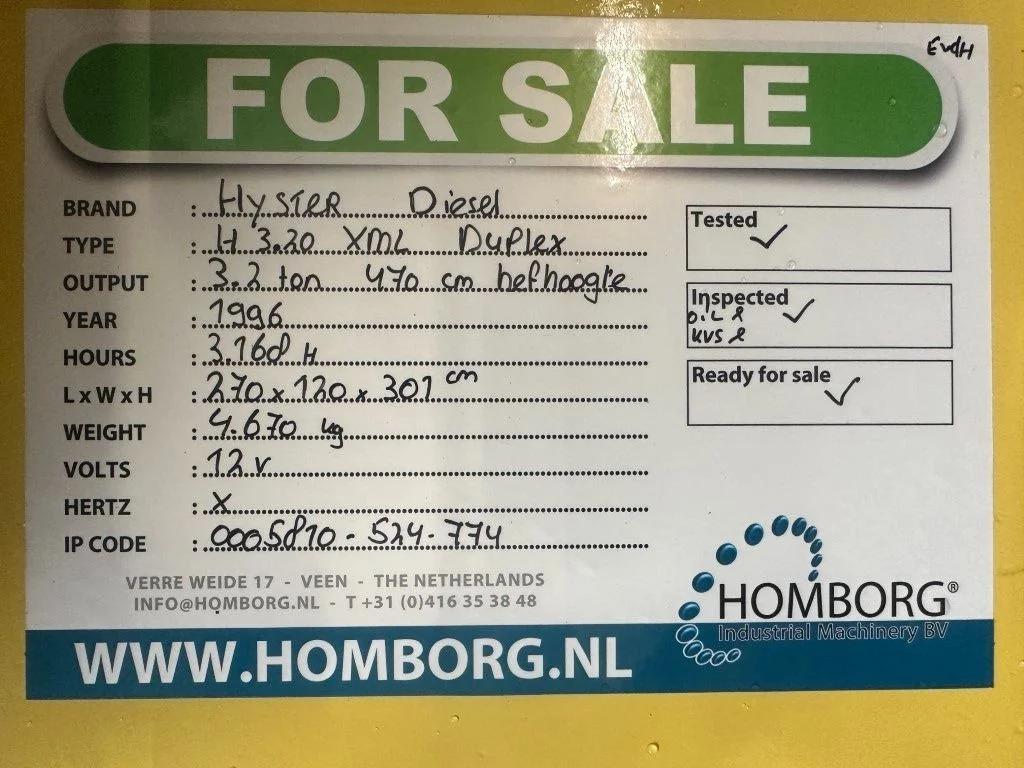 EvdH
FOR SALE
BRAND : Hyster Diesel
TYPE : H 3.20 XML Duplex
OUTPUT : 3.2 ton 470 cm hefhoogte
YEAR : 1996
HOURS : 3.168 H
L x W x H : 270 x 120 x 301 cm
WEIGHT : 4.670 kg
VOLTS : 12 v
HERTZ : X
IP CODE : 0005810-524-774
Tested ✓
Inspected ✓
Ready for sale ✓
VERRE WEIDE 17 - VEEN - THE NETHERLANDS
INFO@HOMBORG.NL - T +31 (0)416 35 38 48
HOMBORG®
Industrial Machinery BV
WWW.HOMBORG.NL